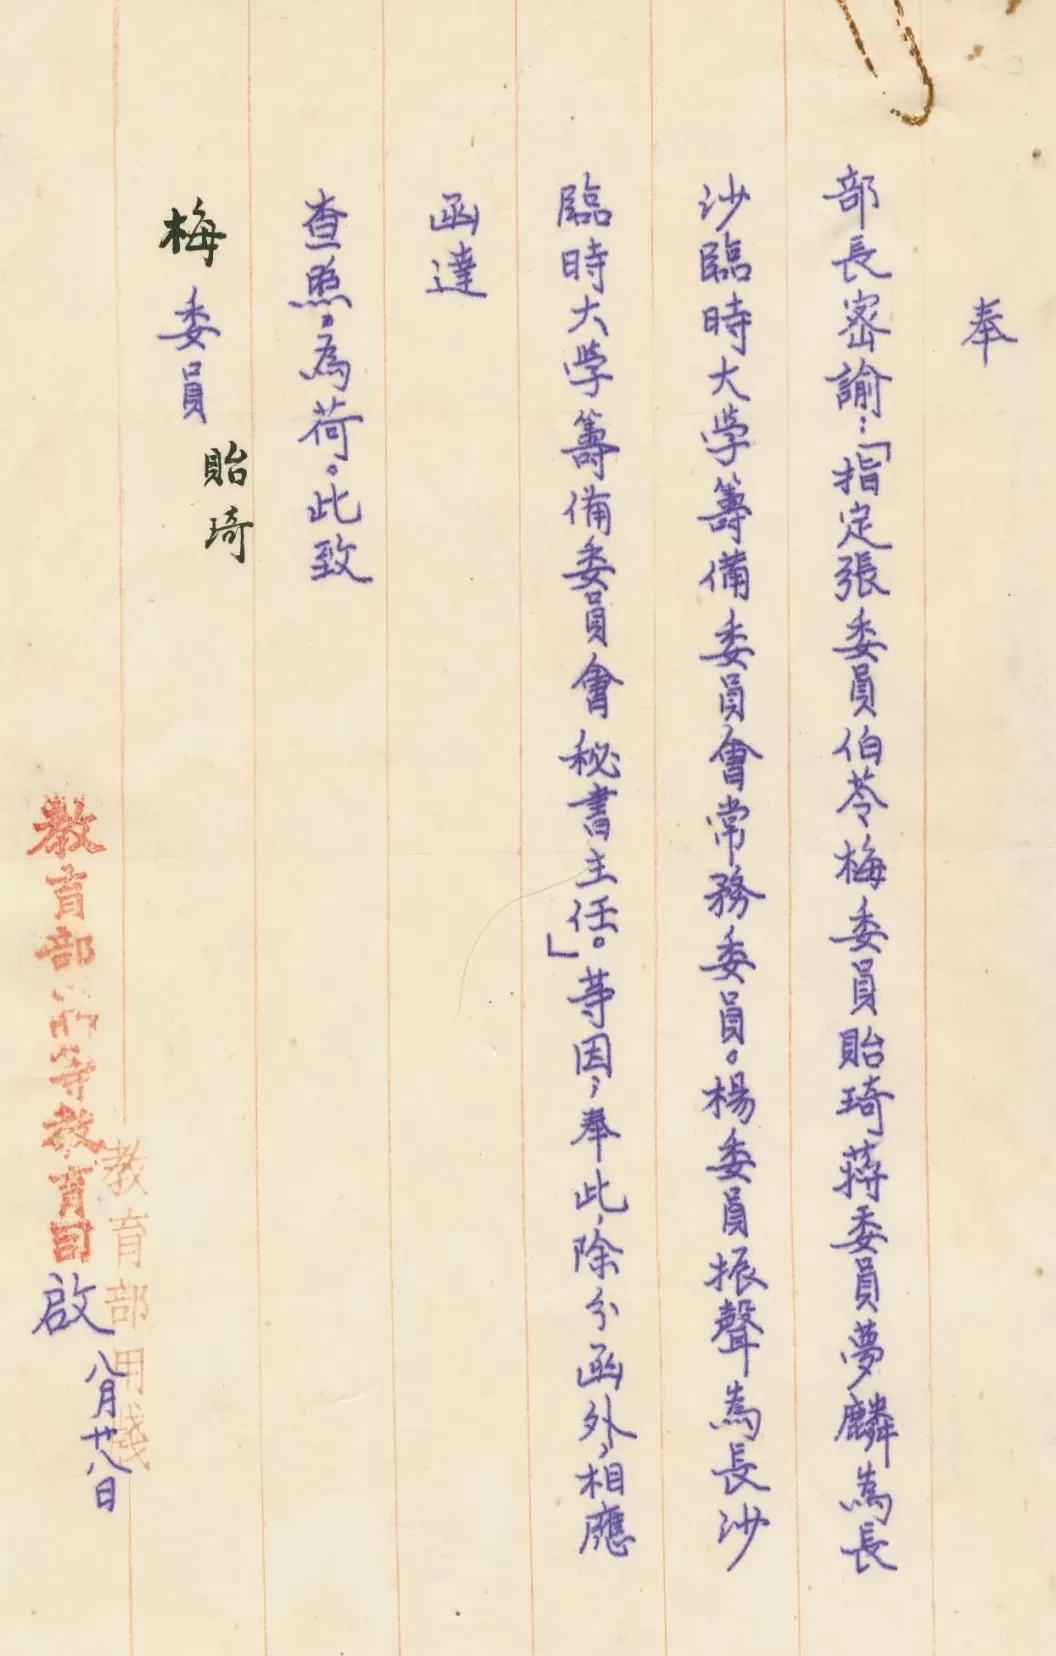 奉
部長密諭：「指定張委員伯苓梅委員貽琦蔣委員夢麟為長
沙臨時大学籌備委員會常務委員。楊委員振聲為長沙
臨時大学籌備委員會秘書主任。」等因，奉此，除分函外，相應
函達
查照，為荷。此致
梅委員
貽琦
教育部高等教育司啟
八月廿八日
教育部用箋